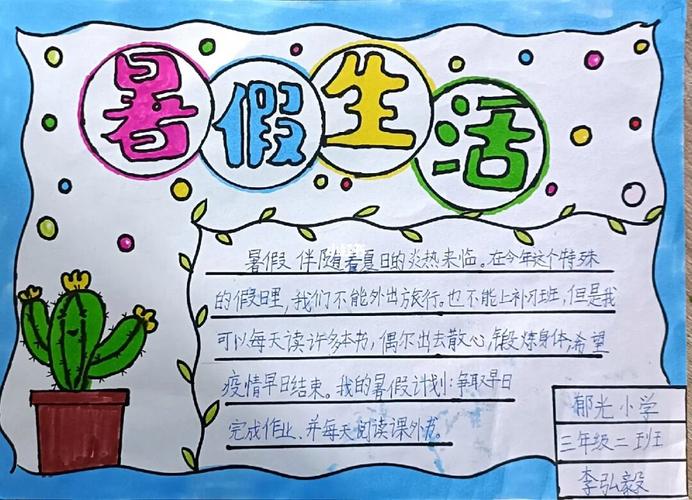 暑假生活
暑假,伴随着夏日的炎热来临。在今年这个特殊
的假日里,我们不能外出旅行。也不能上补习班,但是我
可以每天读许多本书,偶尔出去散心,锻炼身体,希望
疫情早日结束。我的暑假计划:争取早日
完成作业、并每天阅读课外书。
郁光小学
三年级二班
李弘毅